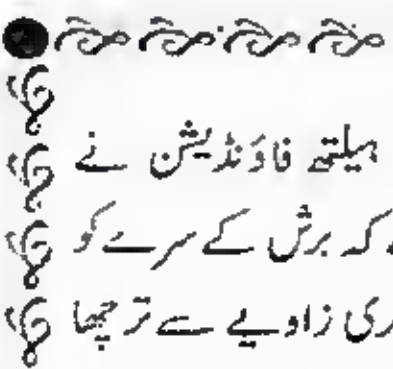 ہیلتھ فاؤنڈیشن نے
کہ برش کے سرے کو
زاویے سے ترچھا